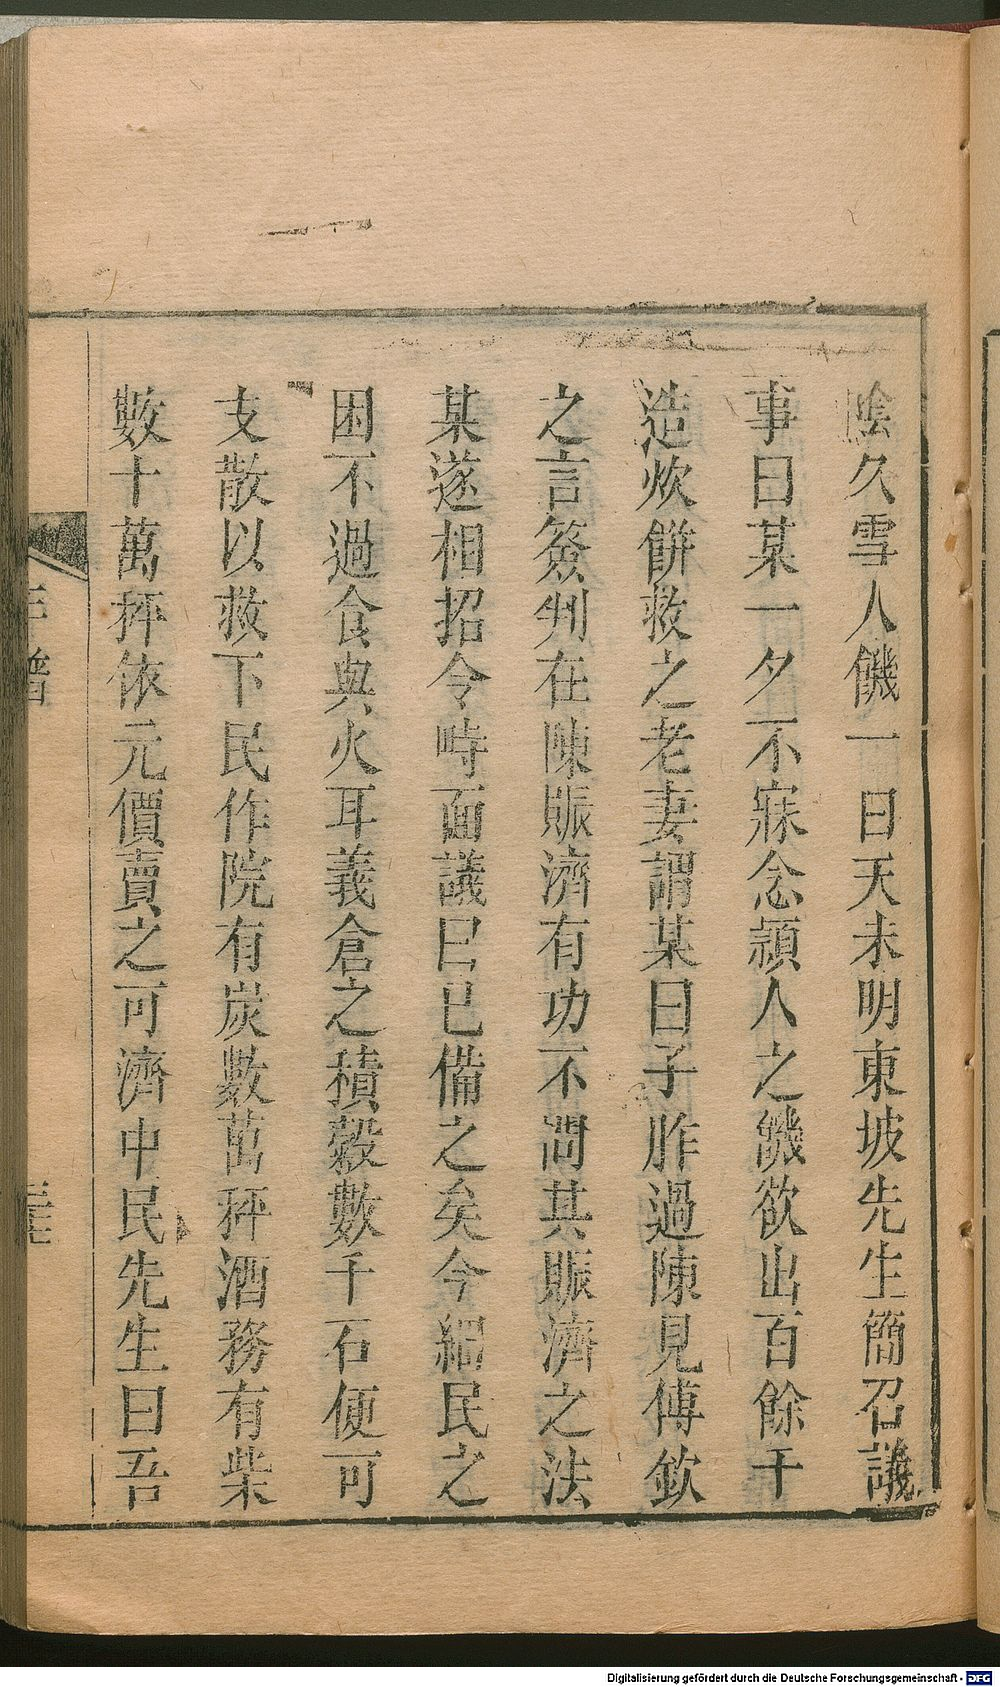 陰久雪人饑一日天未明東坡先生簡召議
事曰某一夕不寐念潁人之饑欲出百餘千
造炊餅救之老妻謂某曰子昨過陳見傅欽
之言簽判在陳賑濟有功不問其賑濟之法
某遂相招令時面議曰已備之矣今細民之
困不過食與火耳義倉之積穀數千石便可
支散以救下民作院有炭數萬秤酒務有柴
數十萬秤依元價賣之可濟中民先生曰吾
年譜
Digitalisierung gefördert durch die Deutsche Forschungsgemeinschaft - DFG